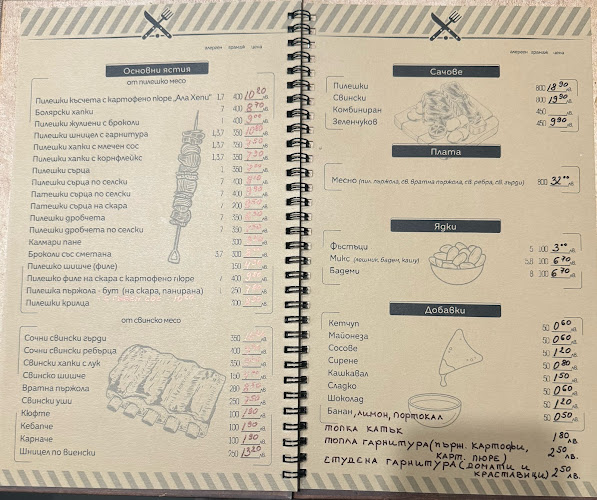 алерген грамаж цена
Основни ястия
от пилешко месо
Пилешки късчета с картофено пюре „Ала Хепи“ 1,7 400 10 20 лв.
Болярски хапки 7 400 8 70 лв.
Пилешки жулиени с броколи 400 9 00 лв.
Пилешки шницел с гарнитура 1,3,7 350 лв.
Пилешки хапки с млечен сос 1,3,7 350 7 50 лв.
Пилешки хапки с корнфлейкс 1,3,7 350 лв.
Пилешки сърца
Пилешки сърца по селски 7 400 лв.
Патешки сърца по селски 7 400 лв.
Патешки сърца на скара 7 200 лв.
Пилешки дробчета 7 350 лв.
Пилешки дробчета по селски 7 350 лв.
Калмари пане 300 лв.
Броколи със сметана 3,7 300 лв.
Пилешко шишче (филе) 150 лв.
Пилешко филе на скара с картофено пюре 7 400 лв.
Пилешка пържола - бут (на скара, панирана) 1 250 лв.
Пилешки крилца 300 лв.
от свинско месо
Сочни свински гърди 350 лв.
Сочни свински ребърца 400 лв.
Свински хапки с лук 350 лв.
Свинско шишче лв.
Вратна пържола 200 лв.
Свински уши 250 7 50 лв.
Кюфте 100 1 90 лв.
Кебапче 100 1 90 лв.
Карначе 100 1 90 лв.
Шницел по виенски 250 13 20 лв.
алерген грамаж цена
Сачове
Пилешки 800 18 90 лв.
Свински 800 19 90 лв.
Комбиниран 450 лв.
Зеленчуков 450 9 90 лв.
Плата
Месно (пил. пържола, св. вратна пържола, св. ребра, св. гърди) 800 32 00 лв.
Ядки
Фъстъци 5 100 3 00 лв.
Микс (лешник, бадем, кашу) 5,8 100 6 70 лв.
Бадеми 8 100 6 70 лв.
Добавки
Кетчуп 50 0 60 лв.
Майонеза 50 0 60 лв.
Сосове 50 1 20 лв.
Сирене 50 0 80 лв.
Кашкавал 50 1 50 лв.
Сладко 50 0 60 лв.
Шоколад 50 1 20 лв.
Банан, лимон, портокал 50 0 50 лв.
топка катък 1 80 лв.
топла гарнитура (пърж. картофи, карт. пюре) 2 50 лв.
студена гарнитура (домати и краставици) 2 50 лв.